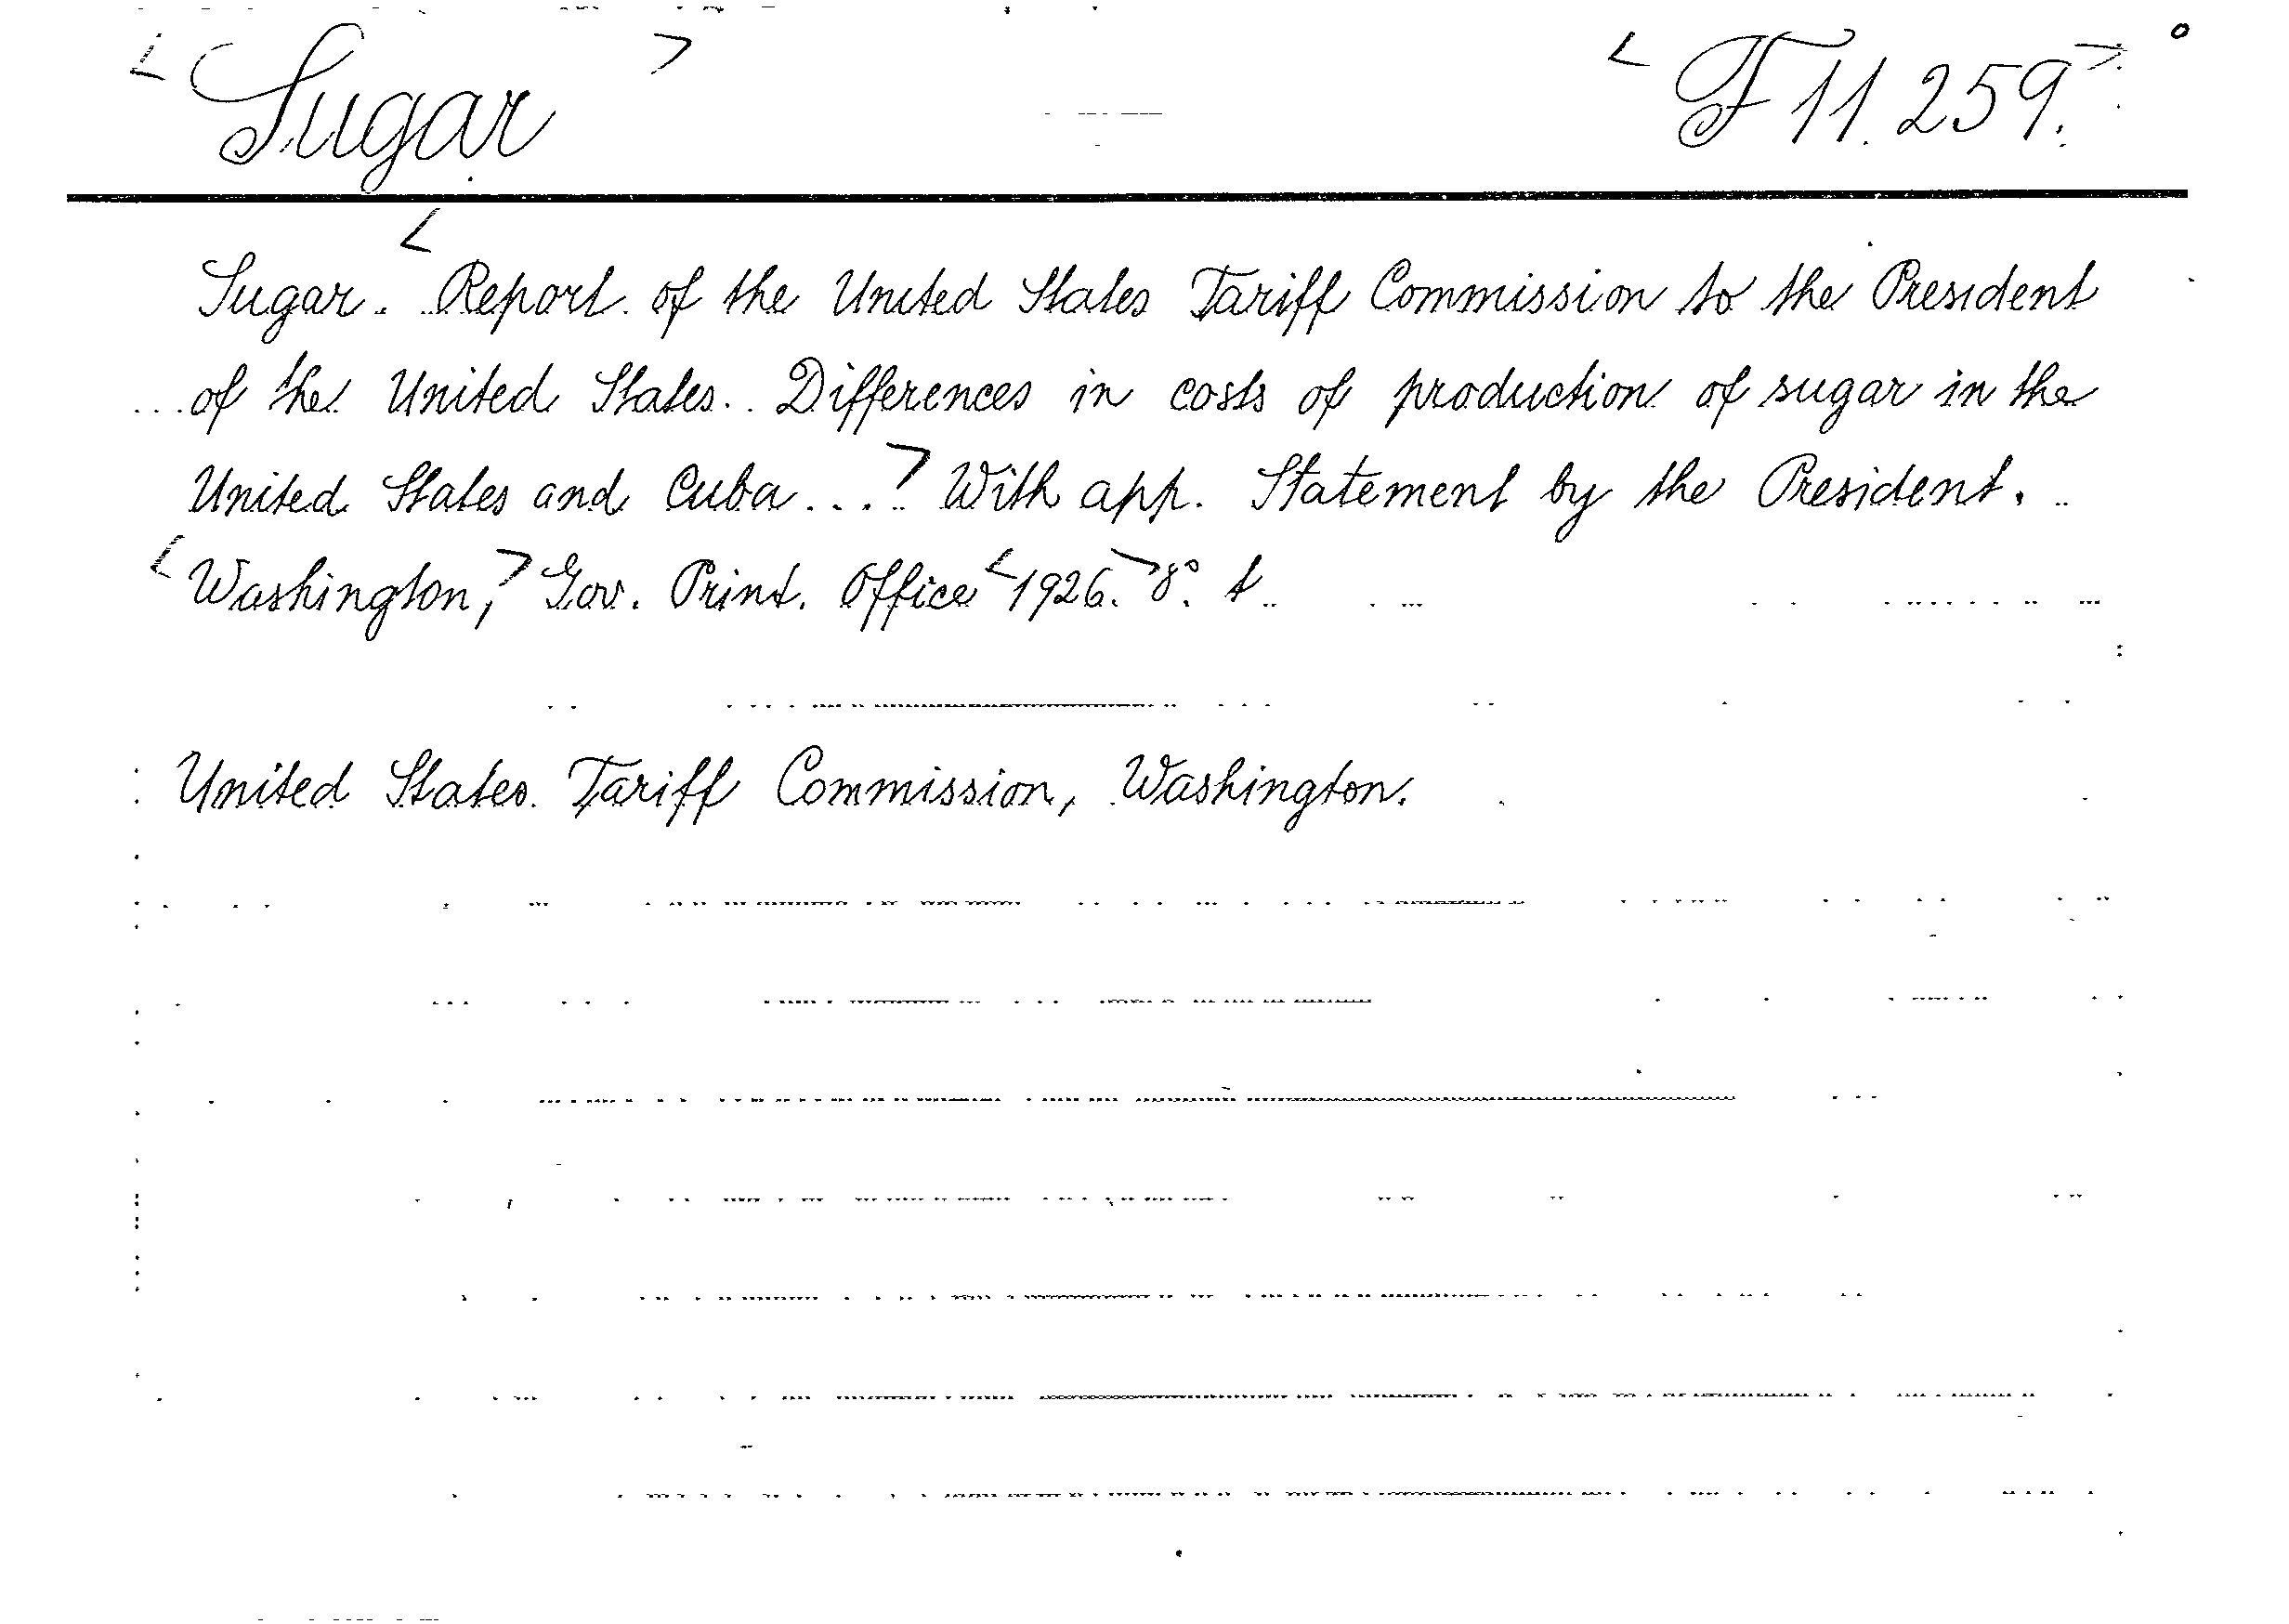 Sugar F 11. 259.
Sugar. Report of the United States Tariff Commission to the President
of the United States. Differences in costs of production of sugar in the
United States and Cuba... With app. Statement by the President.
Washington, Gov. Print. Office 1926. 8°. t
United States Tariff Commission, Washington.